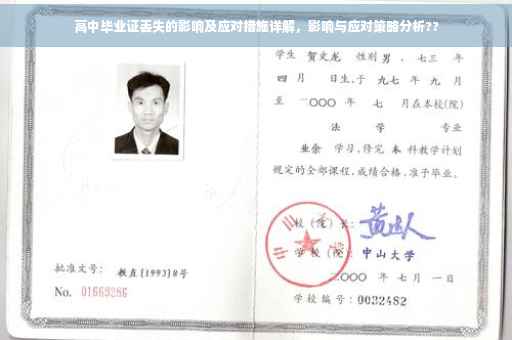 高中毕业证丢失的影响及应对措施详解，影响与应对策略分析??
学生 贺文龙 性别 男，七三 年
四 月 日生，于 九七 年 九 月
至 二〇〇〇 年 七 月在本校(院)
法 学 专业
业余 学习，修完 本 科教学计划
规定的全部课程，成绩合格，准予毕业。
校 (院) 长：
学 校 (院)：中山大学
二〇〇〇 年 七 月 一 日
批准文号：教直[1993]8号
No. 01669286
学校编号：0032482